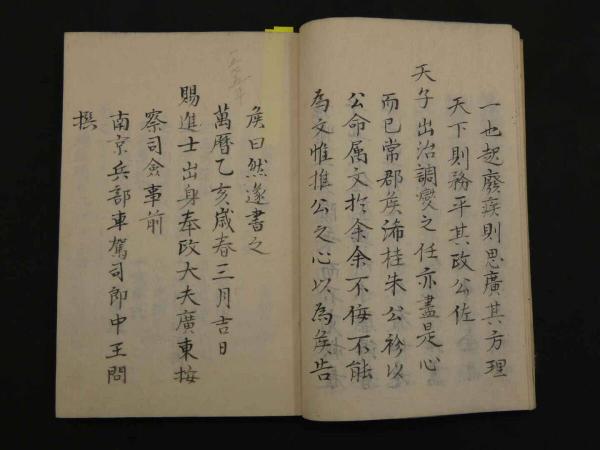 一也起廢疾則思廣其方理
天下則務平其政公佐
天子出治調燮之任亦盡是心
而已常郡矦沛桂朱公衫以
公命属文扵余余不侫不能
為文惟推公之心以為矦告
矦曰然遂書之
萬曆乙亥歲春三月吉日
賜進士出身奉政大夫廣東按
察司僉事前
南京兵部車駕司郎中王問
撰